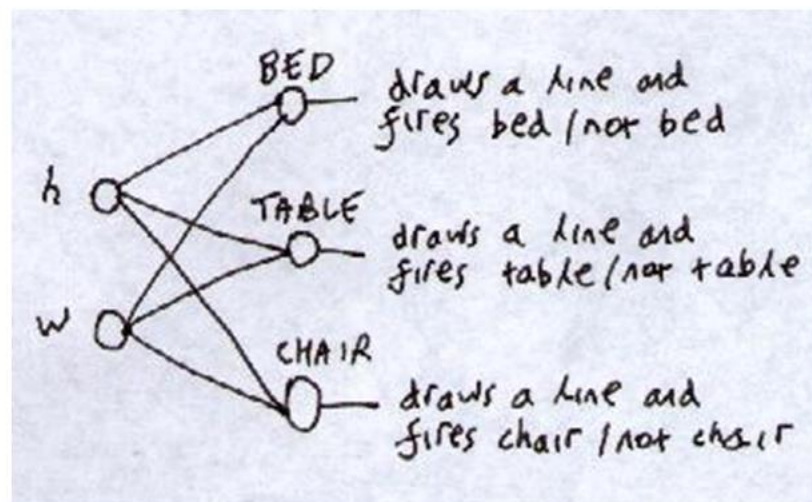 BED
draws a line and
fires bed/not bed
h
TABLE
draws a line and
fires table/not table
w
CHAIR
draws a line and
fires chair/not chair